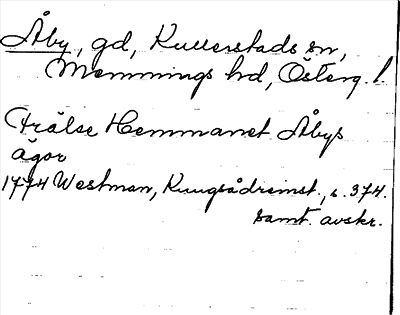 Åby, gd, Kullerstads sn,
Memmings hd, Österg. l
Frälse Hemmanet Åbys
ägor
1774 Westman, Kungsådreinst., s. 374.
samt. avskr.